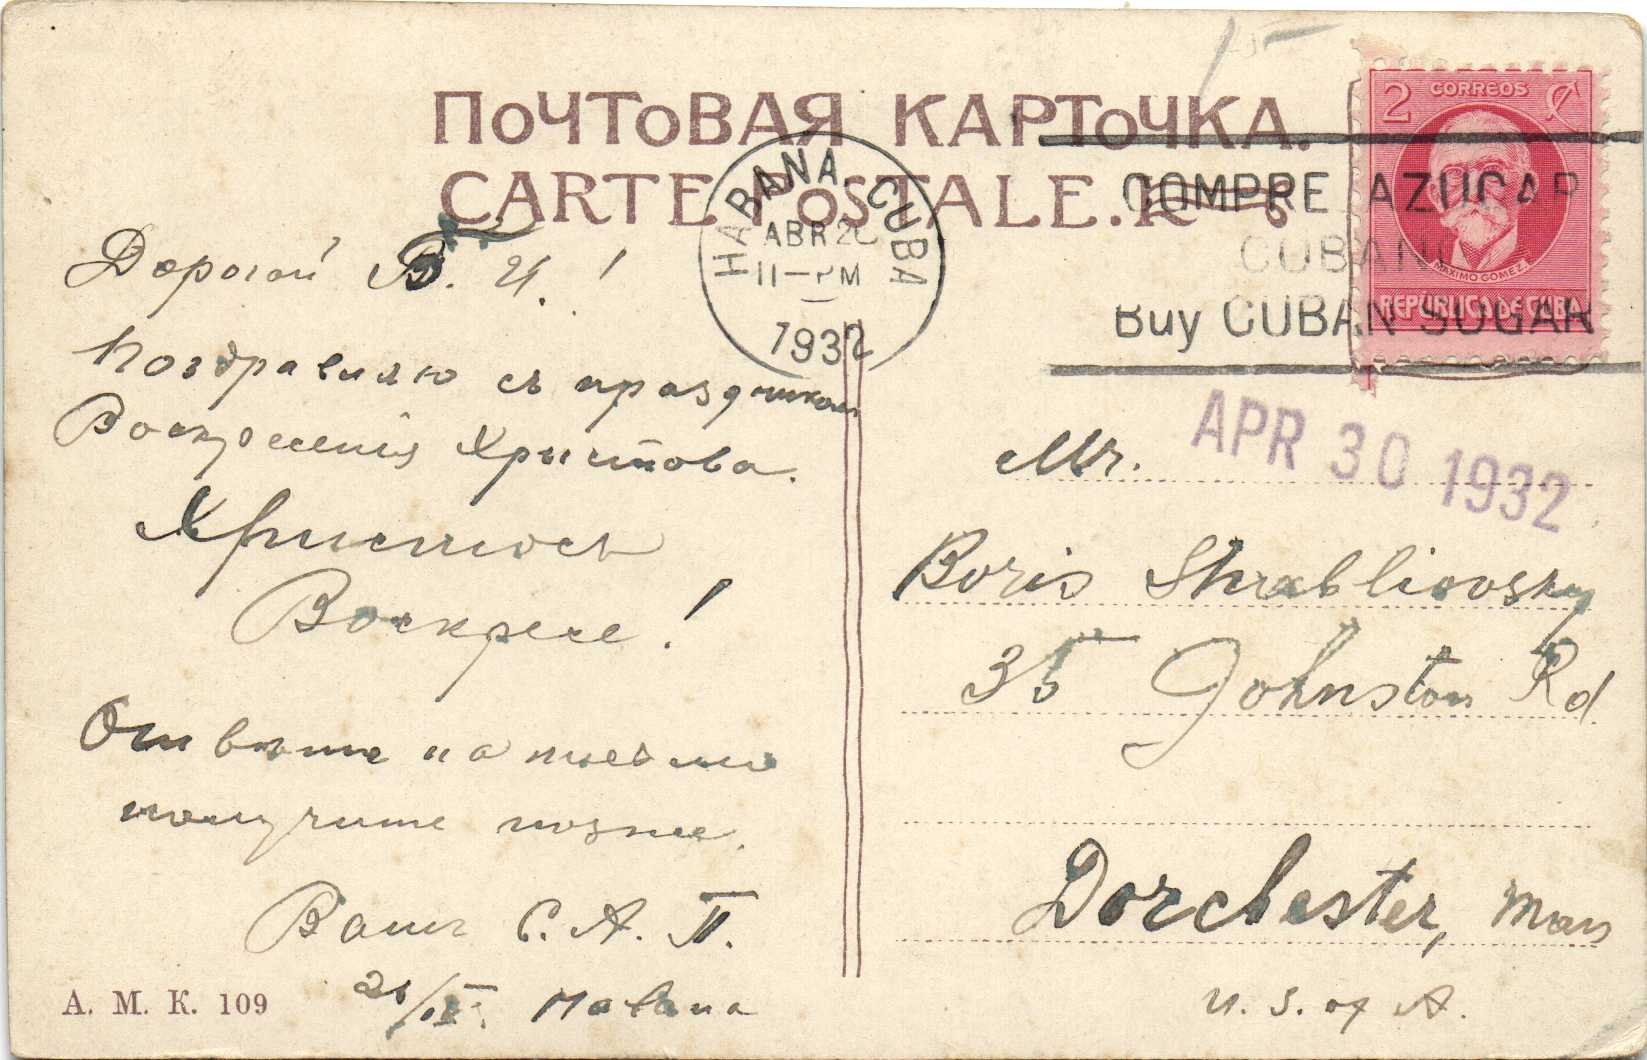 ПОЧТОВАЯ КАРТОЧКА.
CARTE POSTALE.
2 CORREOS
MAXIMO GOMEZ.
REPUBLICA DE CUBA
HABANA, CUBA
ABR 2
11-PM
1932
COMPRE AZUCAR
CUBANO
Buy CUBAN SUGAR
APR 30 1932
Дорогой В. И.!
Поздравляю съ праздником
Воскресенія Христова.
Христосъ
Воскресе!
Отвѣтъ на письмо
получите позже.
Вашъ С. А. П.
/IV. Havana
А. М. К. 109
Mr.
Boris Shrabliovsky
35 Johnston Rd
Dorchester, Mass
U. S. of A.